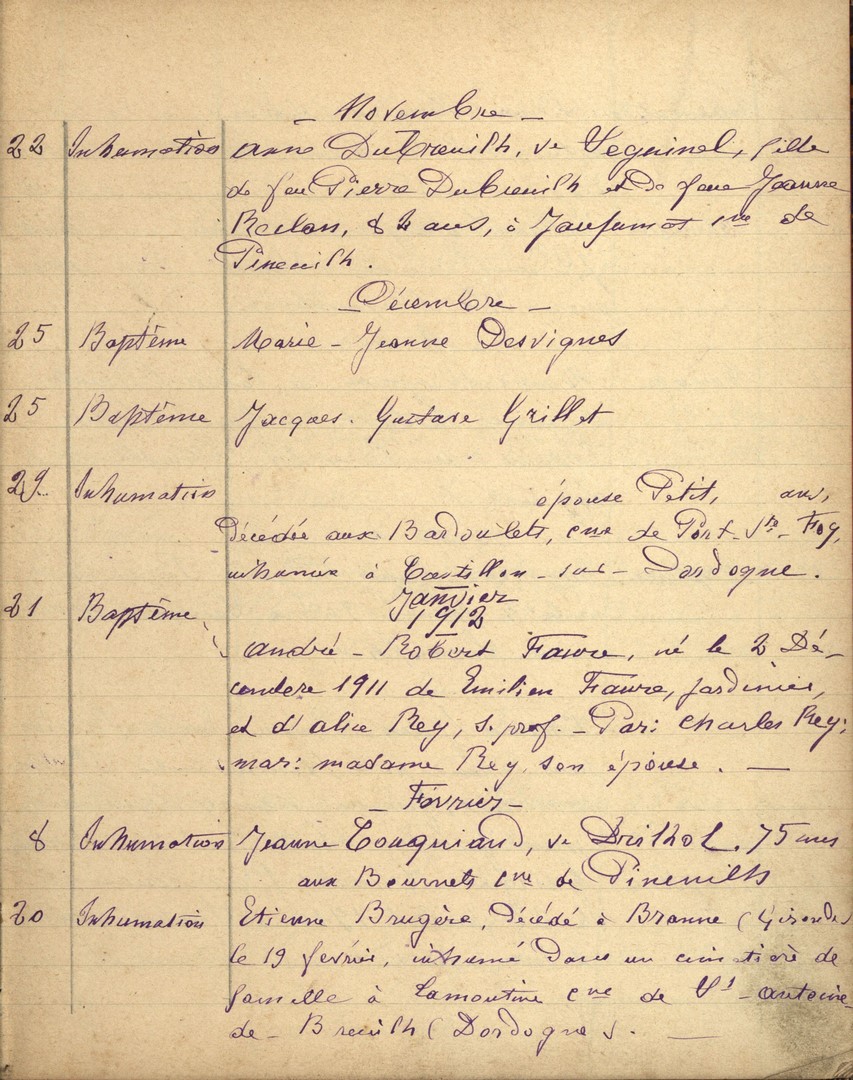 - Novembre -
22 Inhumation Anne Dubreuilh, ve Seguinel, fille
de feu Pierre Dubreuilh et de feue Jeanne
82 ans, à cne de
Pineuilh.
- Décembre -
25 Baptême Marie-Jeanne Desvignes
25 Baptême Jacques. Gustave Grillet
29 Inhumation épouse Petit, ans,
décédée aux Bardoulets, cne de Port-Ste-Foy,
inhumée à Castillon-sur-Dordogne.
Janvier
21 Baptême 1912
André-Robert Faure, né le 2 Dé-
cembre 1911 de Emilien Faure, jardinier,
et d'Alice Rey, s. prof. - Par: Charles Rey;
mar: madame Rey, son épouse. —
- Février -
8 Inhumation Jeanne ve 75 ans
aux Bournets cne de Pineuilh
20 Inhumation Etienne Brugère, décédé à Branne (Gironde)
le 19 février, inhumé dans un cimetière de
famille à Lamoutine cne de St-Antoine-
de-Breuilh (Dordogne). —